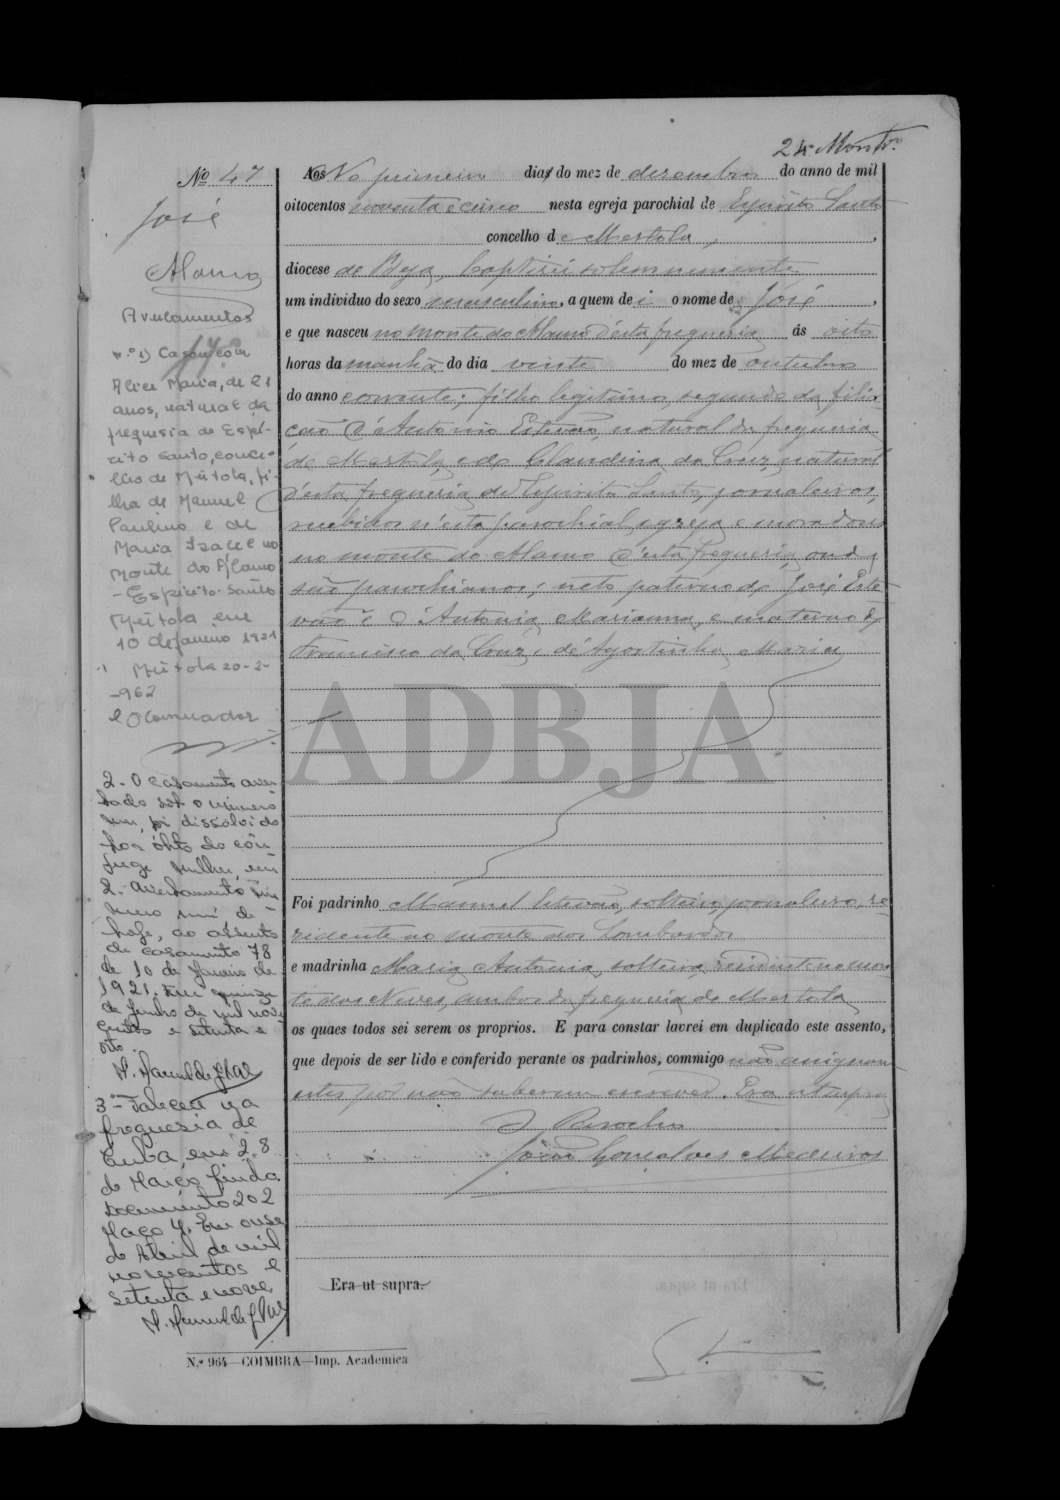 24 Montro.
Nº 47
José
Alamo
Averbamentos
n.º 1) Casou com
Alice Maria, de 21
anos, natural da
freguesia de Espí-
rito Santo, conce-
lho de Mértola, fi-
lha de Manuel
Paulino e de
Maria Isabel no
Monte do Alamo
- Espírito Santo
Mértola em
10 de Janeiro 1921
Mértola 20-2-
-962
O Conservador
2 - O casamento aver-
bado sob o número
um, foi dissolvido
por óbito do côn-
juge mulher, em
2. averbamento nú-
mero um de
hoje, ao assento
de casamento 78
de 10 de Janeiro de
1921. Em quinze
de Junho de mil nove
centos e setenta e
oito.
3º - Faleceu na
freguesia de
Cuba, em 28
de Março findo.
Documento 202
Maço 4. Em onze
de Abril de mil
novecentos e
setenta e nove
Aos No primeiro dias do mez de dezembro do anno de mil
oitocentos noventa e cinco nesta egreja parochial de Espirito Santo
concelho de Mertola,
diocese de Beja, baptisei solemnemente
um individuo do sexo masculino, a quem dei o nome de José,
e que nasceu no monte do Alamo d'esta freguezia ás oito
horas da manhã do dia vinte do mez de outubro
do anno corrente; filho legitimo, segundo da filia-
ção d'Antonio Estevão, natural da freguezia
de Mertola, e de Claudina da Cruz, natural
d'esta freguezia de Espirito Santo, jornaleiros,
recebidos n'esta parochial egreja e moradores
no monte do Alamo d'esta freguezia, onde
são parochianos; neto paterno de José Este-
vão e d'Antonia Marianna, e materno de
Francisco da Cruz e de Agostinha Maria
ADBJA
Foi padrinho Manuel Estevão, solteiro, jornaleiro, re-
zidente no monte dos Lombardos
e madrinha Maria Antonia, solteira, residente no mon-
te das Neves, ambos da freguezia de Mertola
os quaes todos sei serem os proprios. E para constar lavrei em duplicado este assento,
que depois de ser lido e conferido perante os padrinhos, commigo não assignam
estes por não saberem escrever. Era ut supra
O Parocho
João Gonçalves Medeiros
Era ut supra.
N.º 964—COIMBRA—Imp. Academica